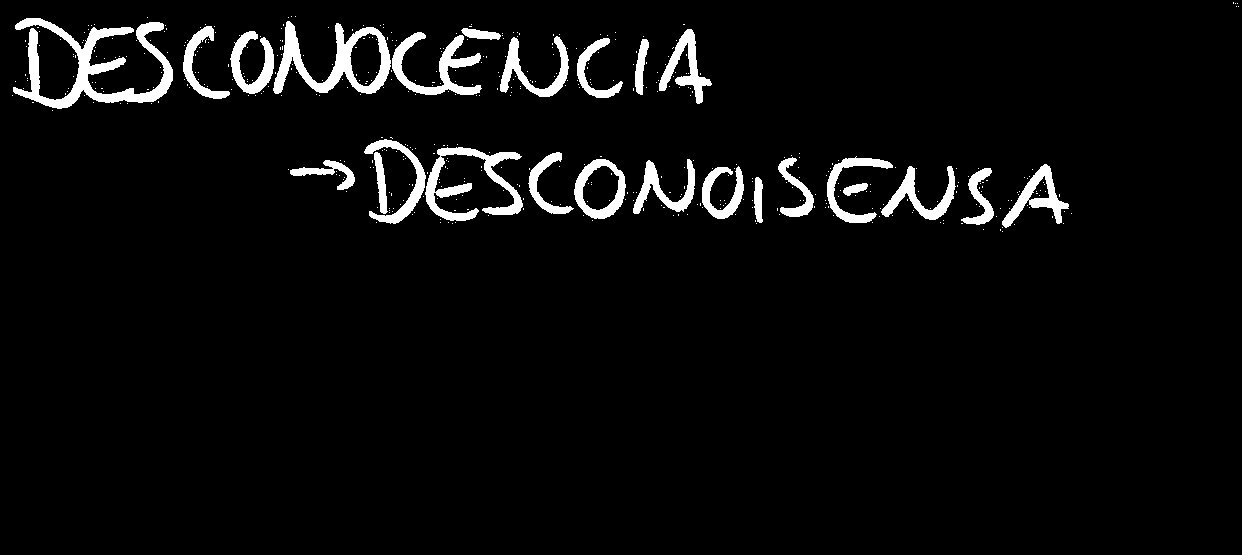 DESCONOCENCIA
→ DESCONOISENSA